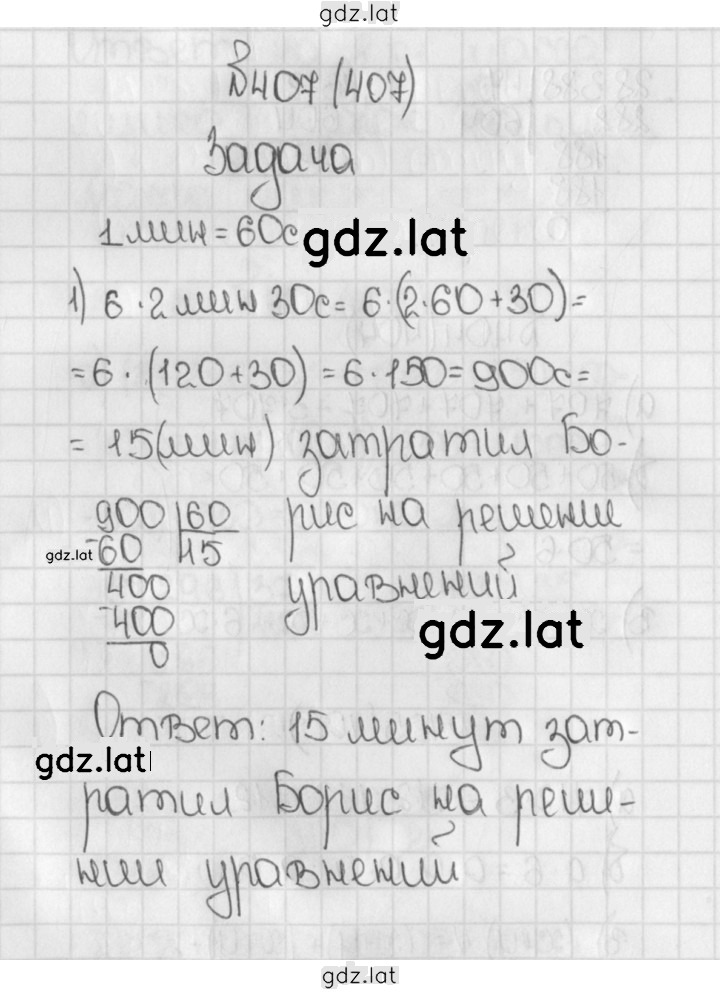 gdz.lat
№407 (407)
Задача
1 мин = 60с
gdz.lat
1) 6 · 2 мин 30с = 6·(2·60+30)=
=6 · (120+30) = 6·150=900с=
= 15(мин) затратил Бо-
900 60 рис на решении
gdz.lat
-60 15
400 уравнений
-400
0
gdz.lat
Ответ: 15 минут зат-
gdz.lat
ратил Борис на реше-
нии уравнений
gdz.lat